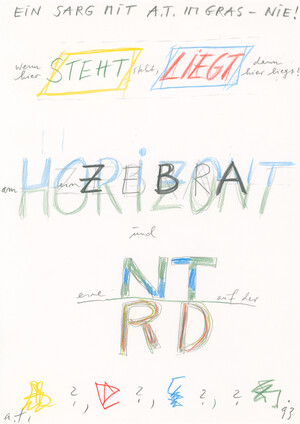 EIN SARG MIT A.T. IM GRAS – NIE!
wenn hier STEHT steht, LIEGT dann hier liegt!
HORIZONT
am ein ZEBRA
und
NT
eine auf der
RD
?, ?, ?, ?
a.t. 93